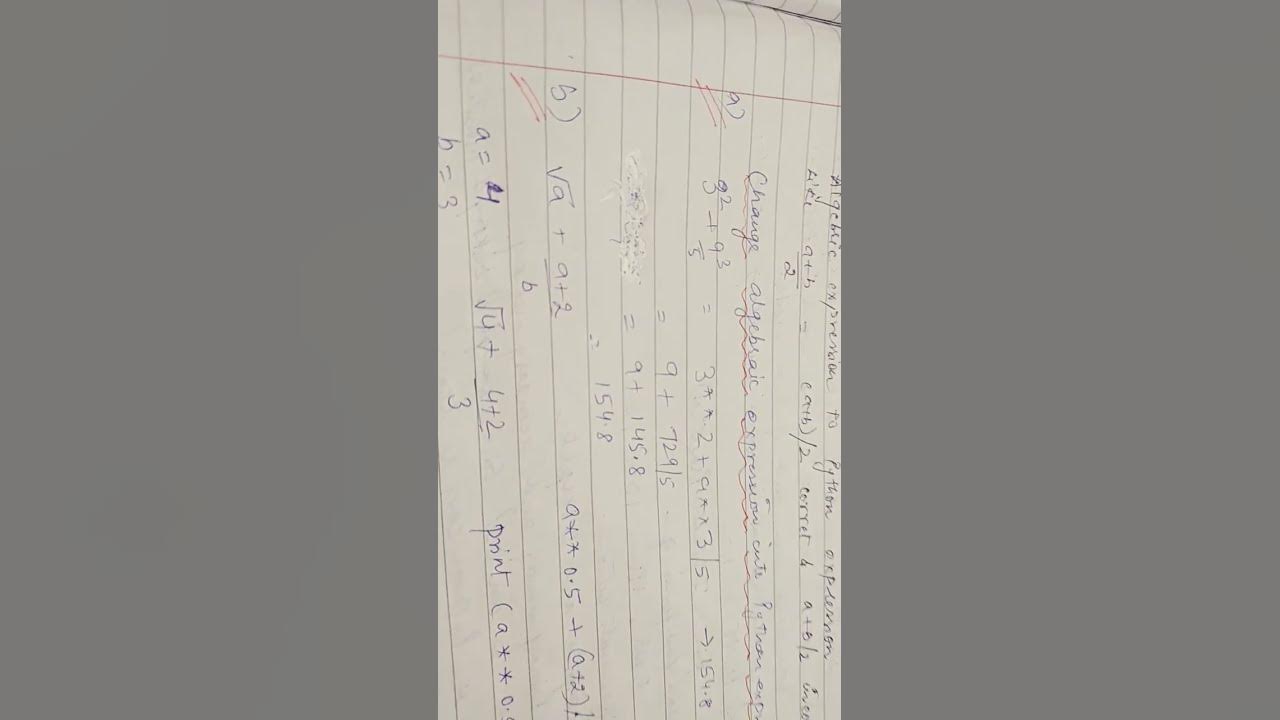 Algebric expression to Python expression
like a+b/2 = (a+b)/2 correct & a+b/2
Change algebraic expression into Python
a) 3² + 9³/5 = 3**2+9**3/5 → 154.8
= 9 + 729/5
= 9 + 145.8
= 154.8
b) √a + a+2/b a**0.5 + (a+2)/
a = 4 √4 + 4+2/3 print (a**0.
b = 3